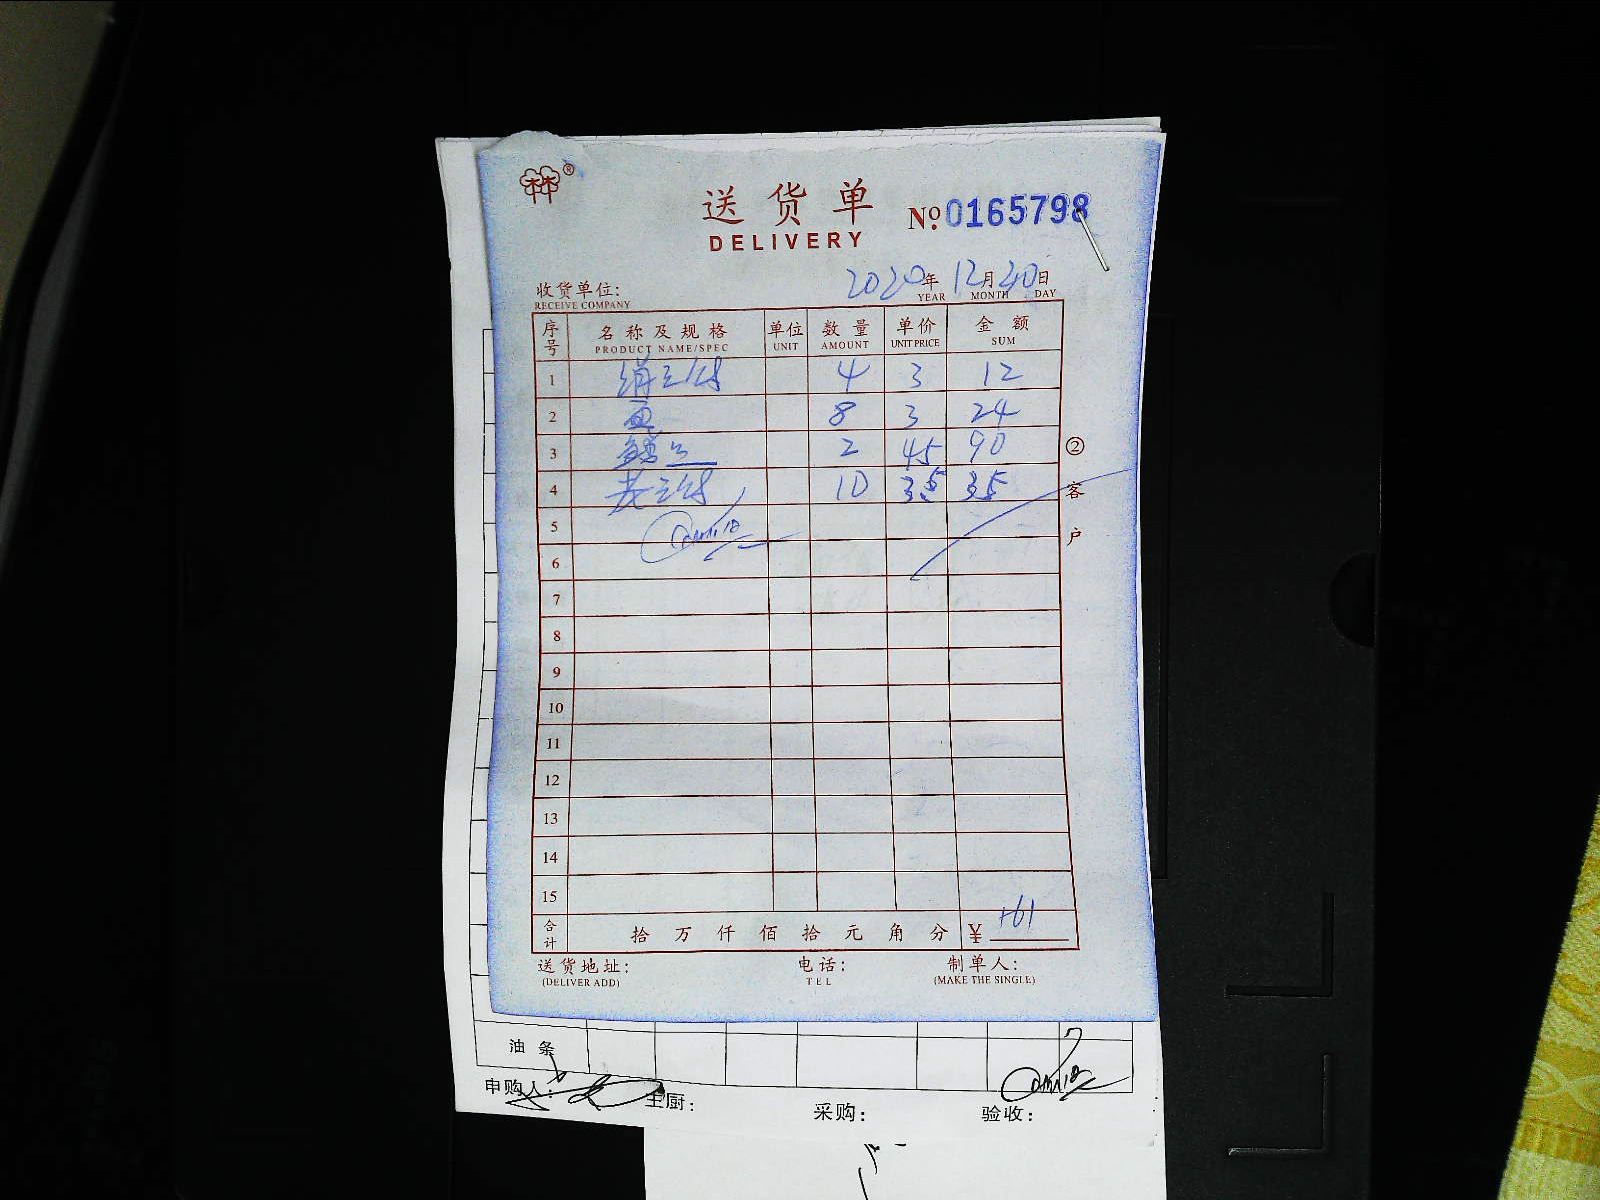 林®
送货单
DELIVERY
№:0165798
收货单位:
RECEIVE COMPANY
2020年12月20日
YEAR MONTH DAY
序号 名称及规格 单位 数量 单价 金额
PRODUCT NAME/SPEC UNIT AMOUNT UNIT PRICE SUM
1 4 3 12
2 8 3 24
3 2 45 90
4 10 35 35
5
6
7
8
9
10
11
12
13
14
15
② 客户
合计 拾万仟佰拾元角分 ¥161
送货地址: 电话: 制单人:
(DELIVER ADD) TEL (MAKE THE SINGLE)
油条
申购人: 主厨: 采购: 验收: